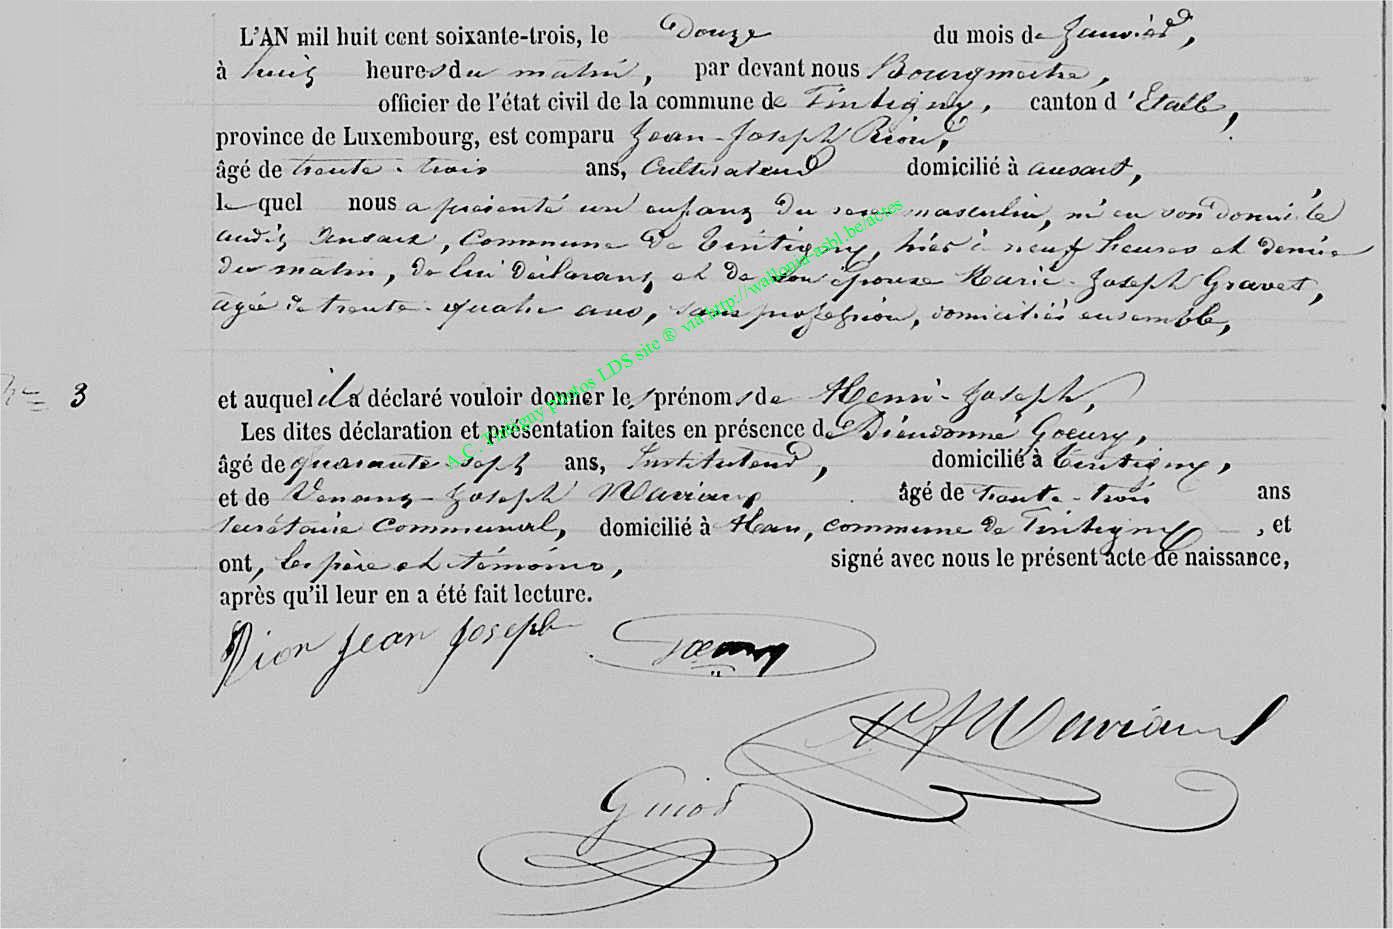 L'AN mil huit cent soixante-trois, le Douze du mois de Janvier,
à huit heures du matin, par devant nous Bourgmestre,
officier de l'état civil de la commune de Tintigny, canton d'Etalle,
province de Luxembourg, est comparu Jean-Joseph Rion,
âgé de trente-trois ans, Cultivateur domicilié à ansart,
lequel nous a présenté un enfant du sexe masculin, né en son domicile
audit Ansart, Commune de Tintigny, hier à neuf heures et demie
du matin, de lui déclarant, et de son épouse Marie-Joseph Gravet,
agée de trente-quatre ans, sans profession, domiciliés ensemble,
N° 3
et auquel il a déclaré vouloir donner les prénoms de Henri-Joseph,
Les dites déclaration et présentation faites en présence de Dieudonné Goeury,
âgé de quarante-sept ans, Instituteur, domicilié à Tintigny,
et de Venant-Joseph Maviaux âgé de trente-trois ans
secrétaire Communal, domicilié à Han, commune de Tintigny, et
ont, les père et témoins, signé avec nous le présent acte de naissance,
après qu'il leur en a été fait lecture.
Rion Jean Joseph Goeury
VJ Maviaux
Guiot
A.C. Tintigny photos LDS site ® via http://wallonia-asbl.be/actes